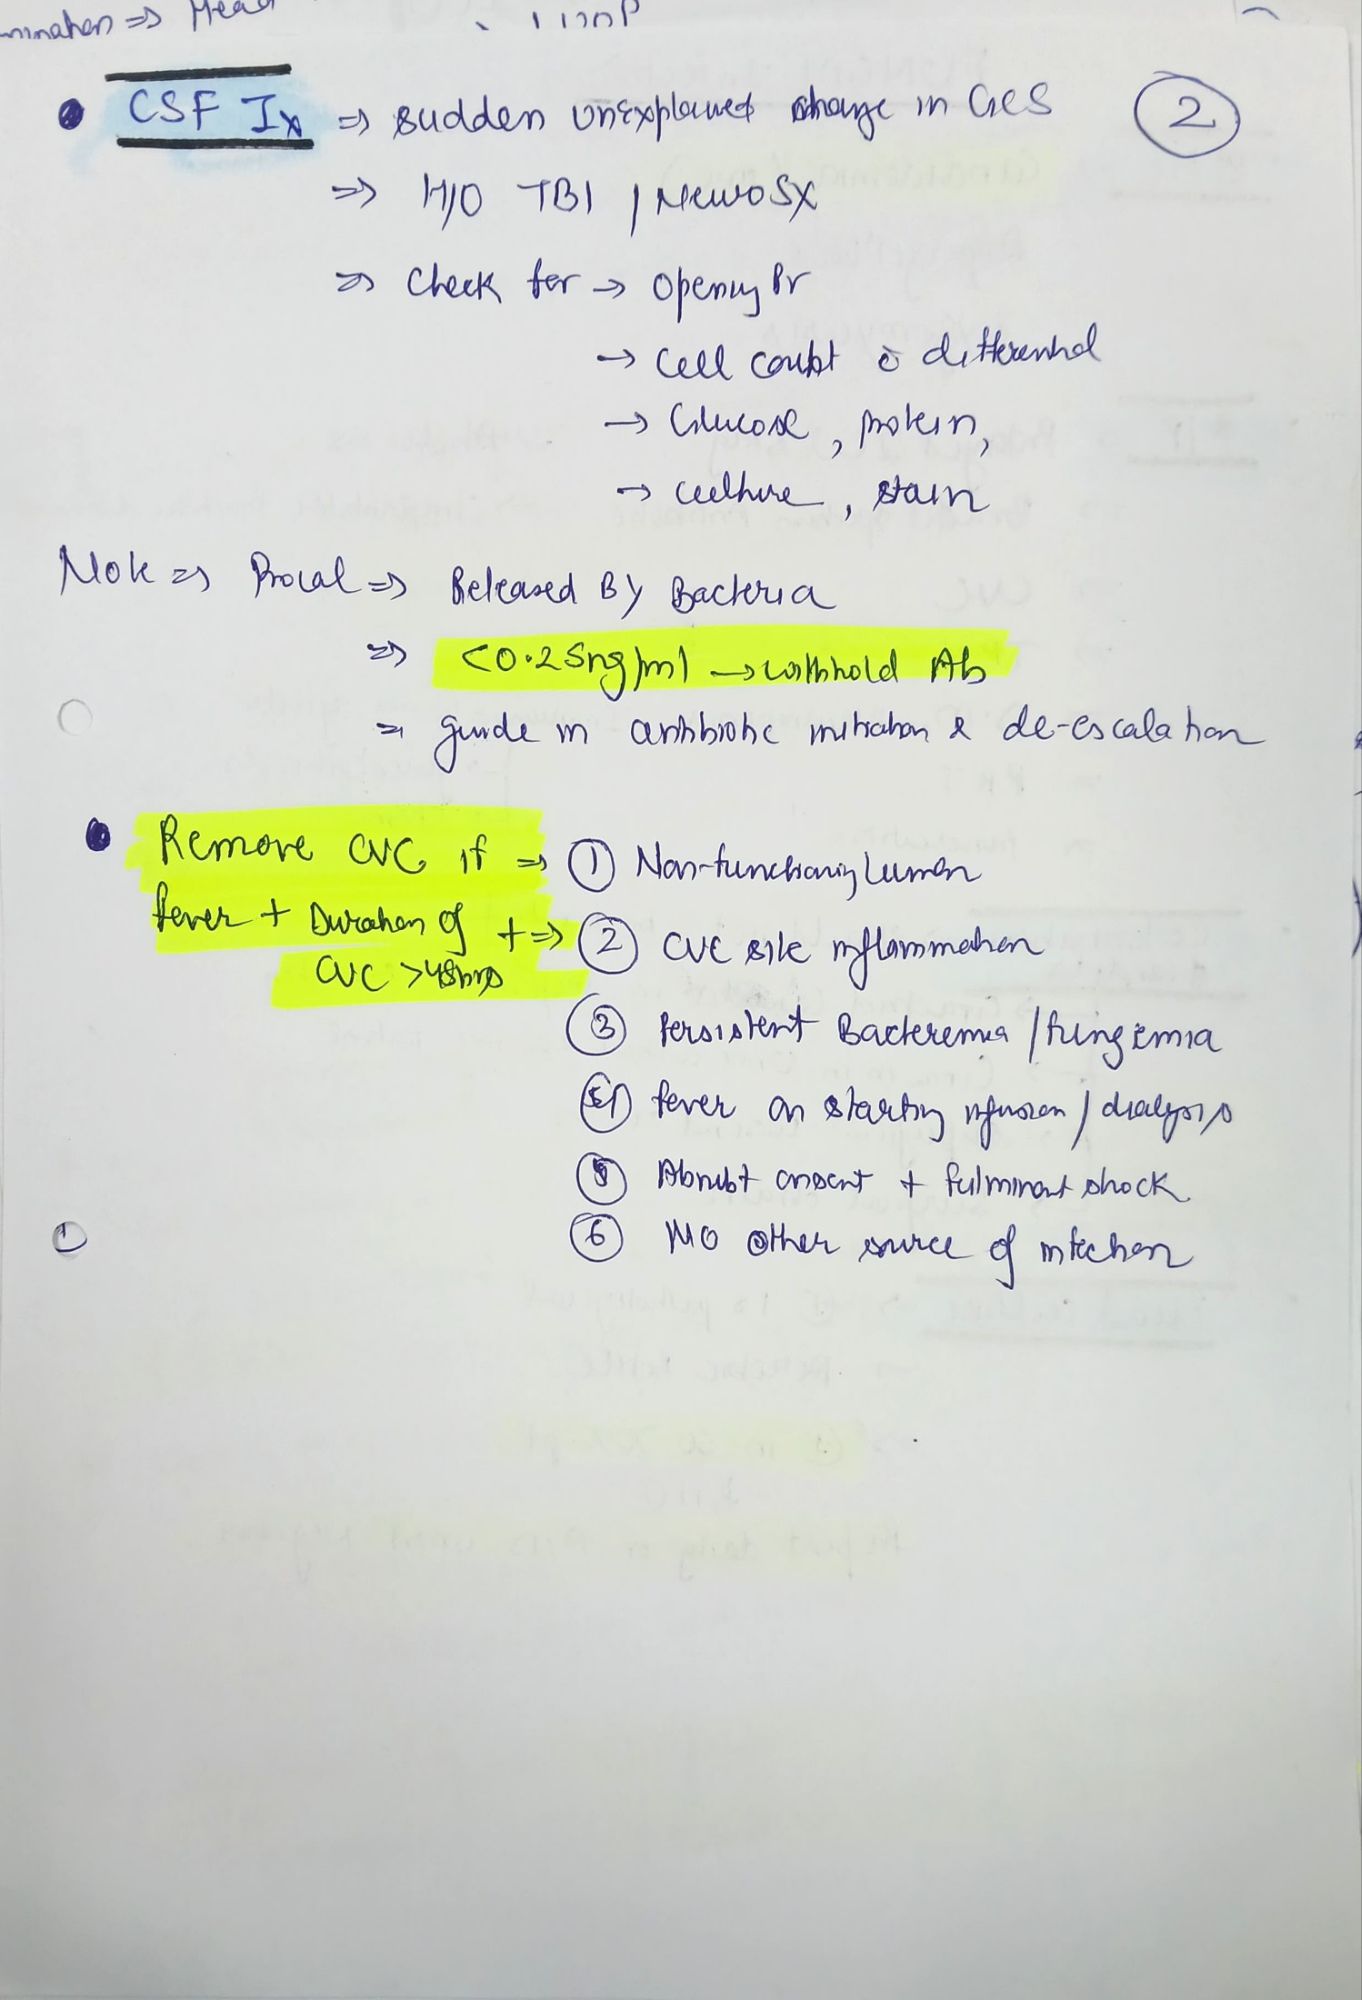 ⇒ Head
• CSF Ix ⇒ sudden unexplained change in GCS
②
⇒ H/O TBI / NeuroSx
⇒ Check for → Opening Pr
→ Cell count c̄ differential
→ Glucose, protein,
→ culture, stain
Note ⇒ Procal ⇒ Released By Bacteria
⇒ <0.25ng/ml → withhold Ab
⇒ guide in antibiotic initiation & de-escalation
• Remove CVC if ⇒ ① Non-functioning Lumen
fever + Duration of + ⇒ ② CVC site inflammation
CVC >48hrs
③ Persistent Bacteremia / fungemia
④ fever on starting infusion / dialysis
⑤ Abrubt onset + fulminant shock
⑥ NO other source of infection